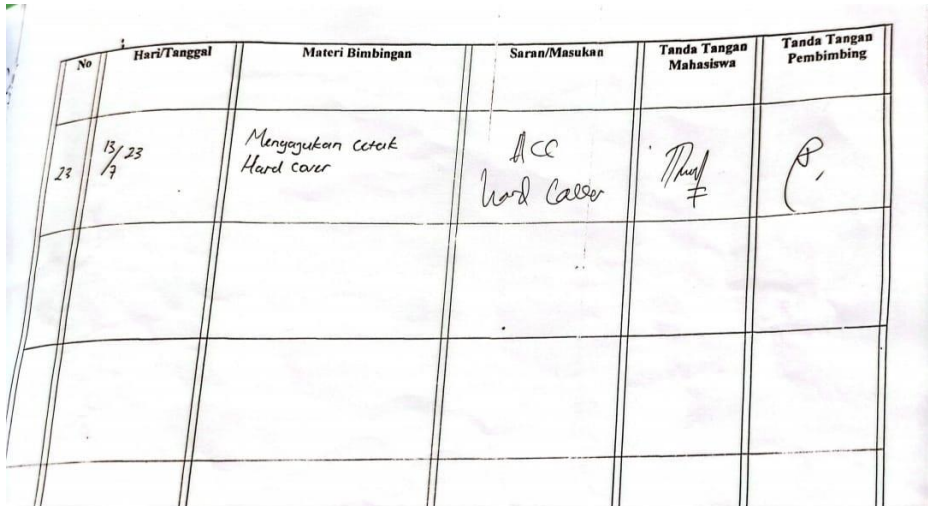 No
Hari/Tanggal
Materi Bimbingan
Saran/Masukan
Tanda Tangan
Mahasiswa
Tanda Tangan
Pembimbing
23
13/7 23
Mengagukan cetak
Hard cover
Acc
hard Cover